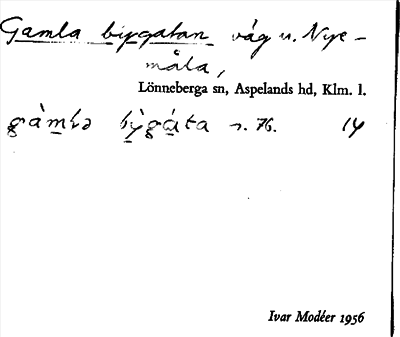 Gamla bygatan väg v. Nye-
måla,
Lönneberga sn, Aspelands hd, Klm. l.
s. 76. 14
Ivar Modéer 1956